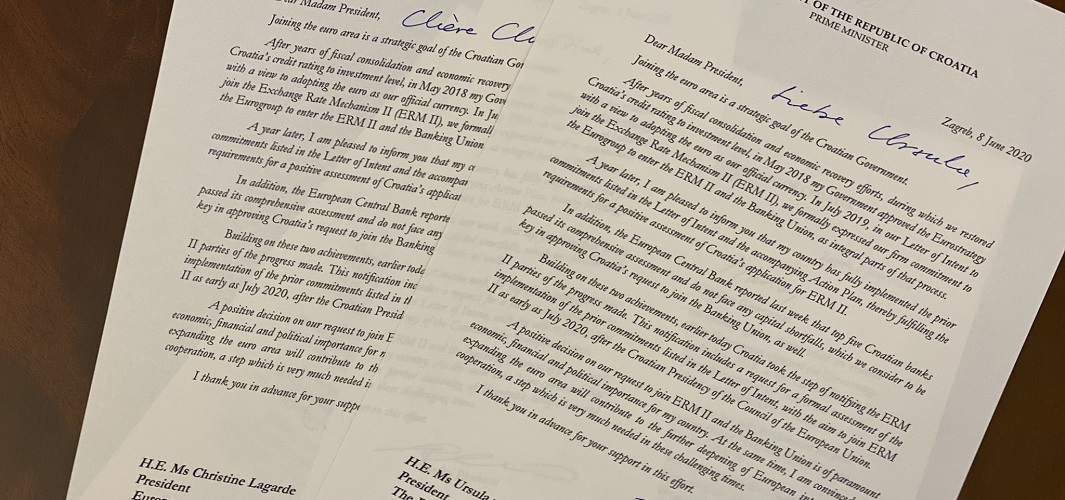 Dear Madam President,
Chère
Joining the euro area is a strategic goal of the Croatian Gov
After years of fiscal consolidation and economic recovery
Croatia's credit rating to investment level, in May 2018 my Gov
with a view to adopting the euro as our official currency. In Ju
join the Exchange Rate Mechanism II (ERM II), we formall
the Eurogroup to enter the ERM II and the Banking Union
A year later, I am pleased to inform you that my c
commitments listed in the Letter of Intent and the accompan
requirements for a positive assessment of Croatia's applicat
In addition, the European Central Bank reporte
passed its comprehensive assessment and do not face any
key in approving Croatia's request to join the Banking
Building on these two achievements, earlier toda
II parties of the progress made. This notification inc
implementation of the prior commitments listed in th
II as early as July 2020, after the Croatian Presid
A positive decision on our request to join E
economic, financial and political importance for m
expanding the euro area will contribute to th
cooperation, a step which is very much needed i
I thank you in advance for your suppo
H.E. Ms Christine Lagarde
President
OF THE REPUBLIC OF CROATIA
PRIME MINISTER
Zagreb, 8 June 2020
Dear Madam President,
Liebe Ursula,
Joining the euro area is a strategic goal of the Croatian Government.
After years of fiscal consolidation and economic recovery efforts, during which we restored
Croatia's credit rating to investment level, in May 2018 my Government approved the Eurostrategy
with a view to adopting the euro as our official currency. In July 2019, in our Letter of Intent to
join the Exchange Rate Mechanism II (ERM II), we formally expressed our firm commitment to
the Eurogroup to enter the ERM II and the Banking Union, as integral parts of that process.
A year later, I am pleased to inform you that my country has fully implemented the prior
commitments listed in the Letter of Intent and the accompanying Action Plan, thereby fulfilling the
requirements for a positive assessment of Croatia's application for ERM II.
In addition, the European Central Bank reported last week that top five Croatian banks
passed its comprehensive assessment and do not face any capital shortfalls, which we consider to be
key in approving Croatia's request to join the Banking Union, as well.
Building on these two achievements, earlier today Croatia took the step of notifying the ERM
II parties of the progress made. This notification includes a request for a formal assessment of the
implementation of the prior commitments listed in the Letter of Intent, with the aim to join ERM
II as early as July 2020, after the Croatian Presidency of the Council of the European Union.
A positive decision on our request to join ERM II and the Banking Union is of paramount
economic, financial and political importance for my country. At the same time, I am convinced
expanding the euro area will contribute to the further deepening of European int
cooperation, a step which is very much needed in these challenging times.
I thank you in advance for your support in this effort.
H.E. Ms Ursula
President